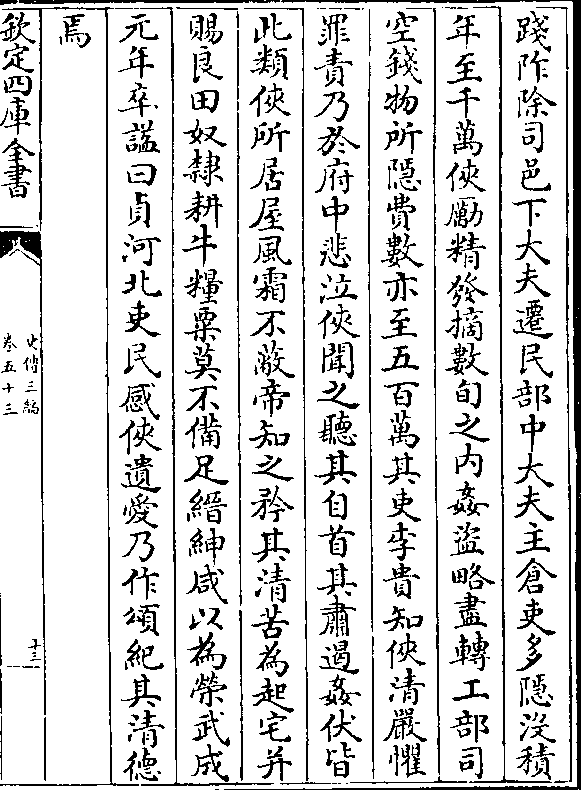 踐阼除司邑下大夫遷民部中大夫主倉吏多隱没積
年至千萬俠勵精發摘數旬之内姦盜略盡轉工部司
空錢物所隱費數亦至五百萬其吏李貴知俠清嚴懼
罪責乃於府中悲泣俠聞之聽其自首其肅遏姦伏皆
此類俠所居屋風霜不蔽帝知之矜其清苦為起宅并
賜良田奴隸耕牛糧粟莫不備足縉紳咸以為榮武成
元年卒謚曰貞河北吏民感俠遺愛乃作頌紀其清德
焉
欽定四庫全書
史傳三編
卷五十三
十三